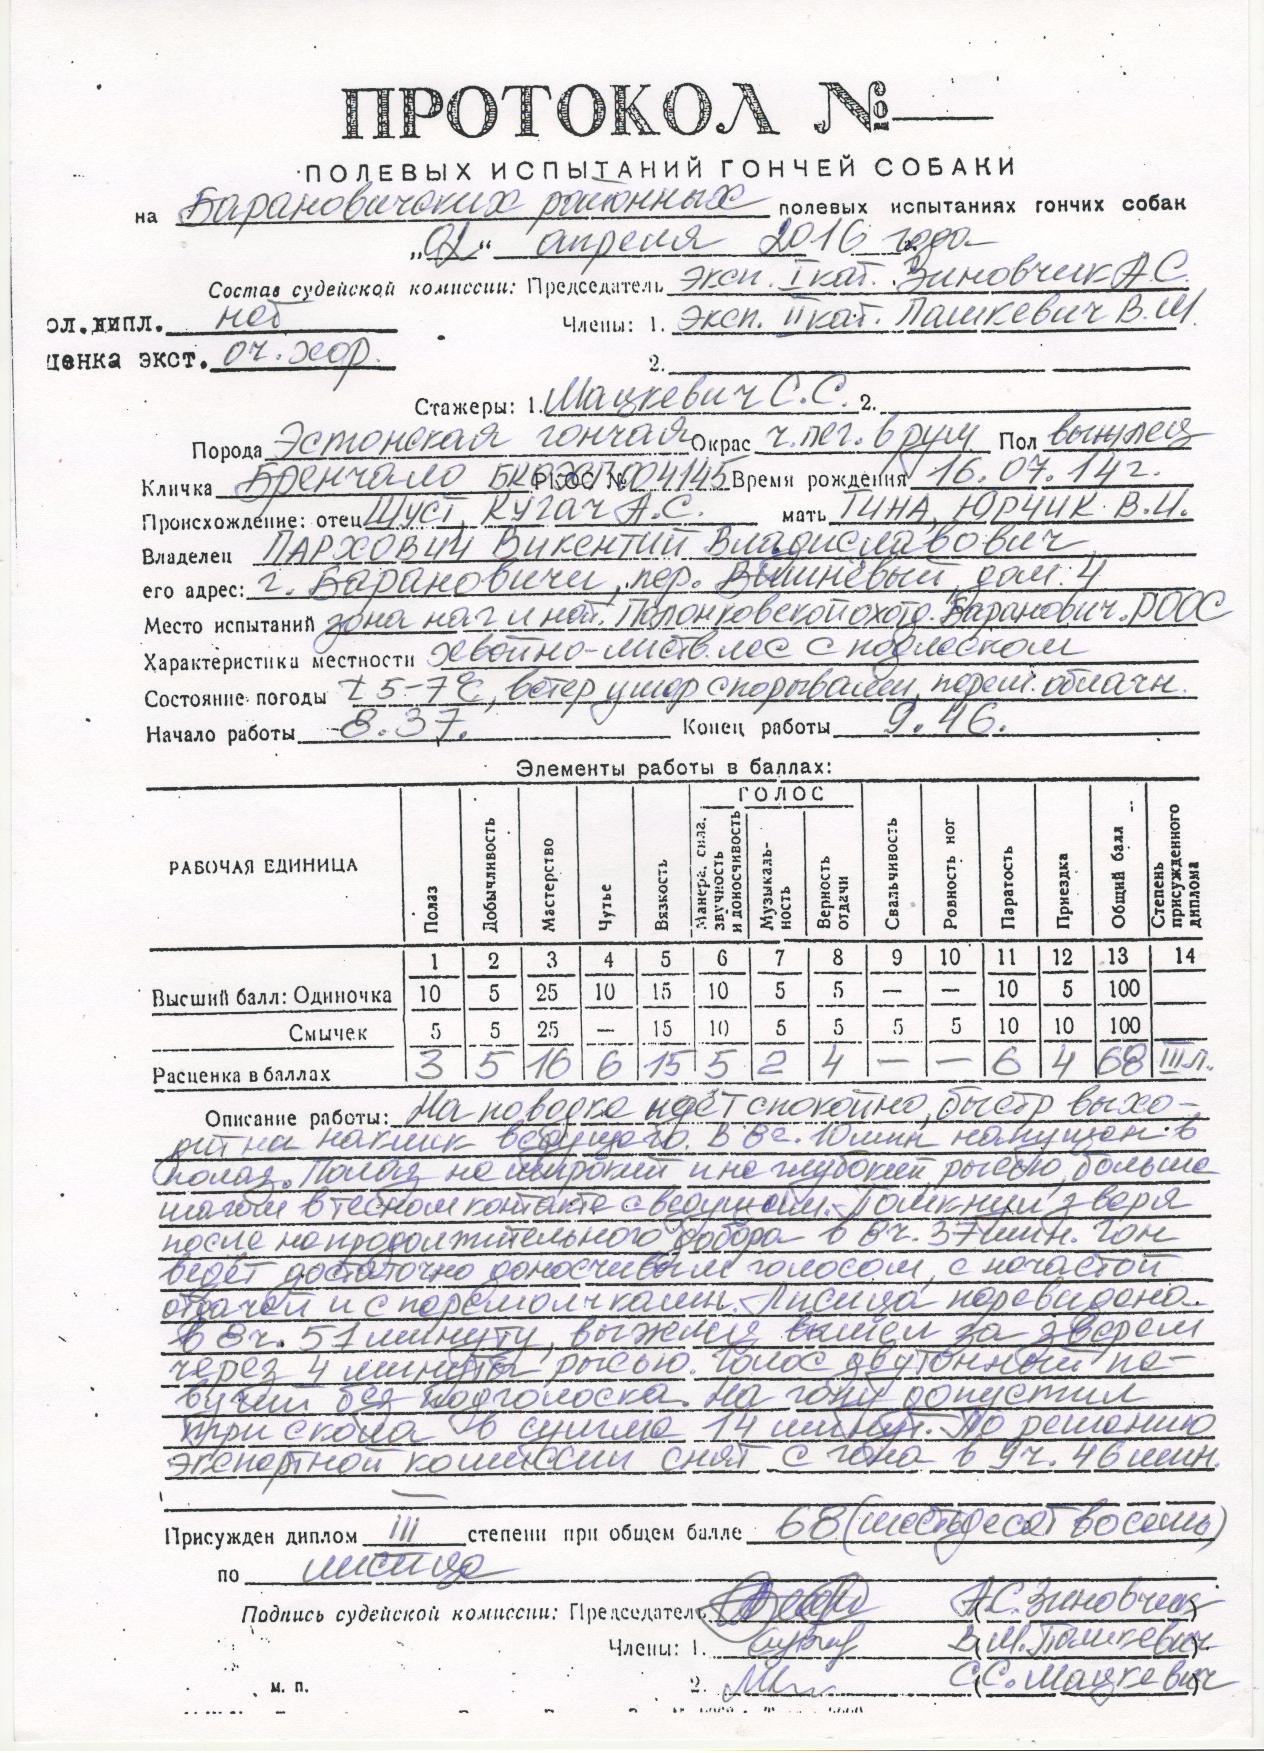 ПРОТОКОЛ №
ПОЛЕВЫХ ИСПЫТАНИЙ ГОНЧЕЙ СОБАКИ
на Барановичских районных полевых испытаниях гончих собак
„02“ апреля 2016 года
Состав судейской комиссии: Председатель эксп. I кат. Зиновчик А.С.
ол. дипл. нет Члены: 1. эксп. II кат. Пашкевич В.М.
ценка экст. оч. хор. 2.
Стажеры: 1. Мацкевич С.С. 2.
Порода Эстонская гончая Окрас ч. пег. в рум Пол выжлец
Кличка Бренчало 004145 Время рождения 16.07.14 г.
Происхождение: отец Шуст, Кугач А.С. мать ТИНА, ЮРЧИК В.И.
Владелец ПАРХОВИЧ Викентий Владиславович
его адрес: г. Барановичи, пер. Вишнёвый, дом 4
Место испытаний зона наг и нат. Полонковской охот. Баранович. РООС
Характеристика местности хвойно-листв. лес с подлеском
Состояние погоды +5-7°С, ветер умер с порывами, перем. облачн.
Начало работы 8.37. Конец работы 9.46.
Элементы работы в баллах:
РАБОЧАЯ ЕДИНИЦА Полаз Добычливость Мастерство Чутье Вязкость ГОЛОС Манера, сила, звучность и доносчивость Музыкальность Верность отдачи Свальчивость Ровность ног Паратость Приездка Общий балл Степень присужденного диплома
1 2 3 4 5 6 7 8 9 10 11 12 13 14
Высший балл: Одиночка 10 5 25 10 15 10 5 5 — — 10 5 100
Смычек 5 5 25 — 15 10 5 5 5 5 10 10 100
Расценка в баллах 3 5 16 6 15 5 2 4 — — 6 4 68 III л.
Описание работы: На поводке идёт спокойно, быстр выхо-
дит на наклик ведущего. В 8 ч. 10 мин напущен в
полаз. Полаз не широкий и не глубокий, рысью, больше
шагом в тесном контакте с ведущим. Помкнул зверя
после непродолжительного добора в 8 ч. 37 мин. Гон
ведёт достаточно доносчивым голосом, с нечастой
отдачей и с перемолчками. Лисица перевидена
в 8 ч. 51 минуту, выжлец вышел за зверем
через 4 минуты рысью. Голос двутонный пе-
вучий без подголоска. На гону допустил
три скола в сумме 14 минут. По решению
экспертной комиссии снят с гона в 9 ч. 46 мин.
Присужден диплом III степени при общем балле 68 (шестьдесят восемь)
по лисице
Подпись судейской комиссии: Председатель (А.С. Зиновчик)
Члены: 1. (В.М. Пашкевич)
м. п. 2. (С.С. Мацкевич)